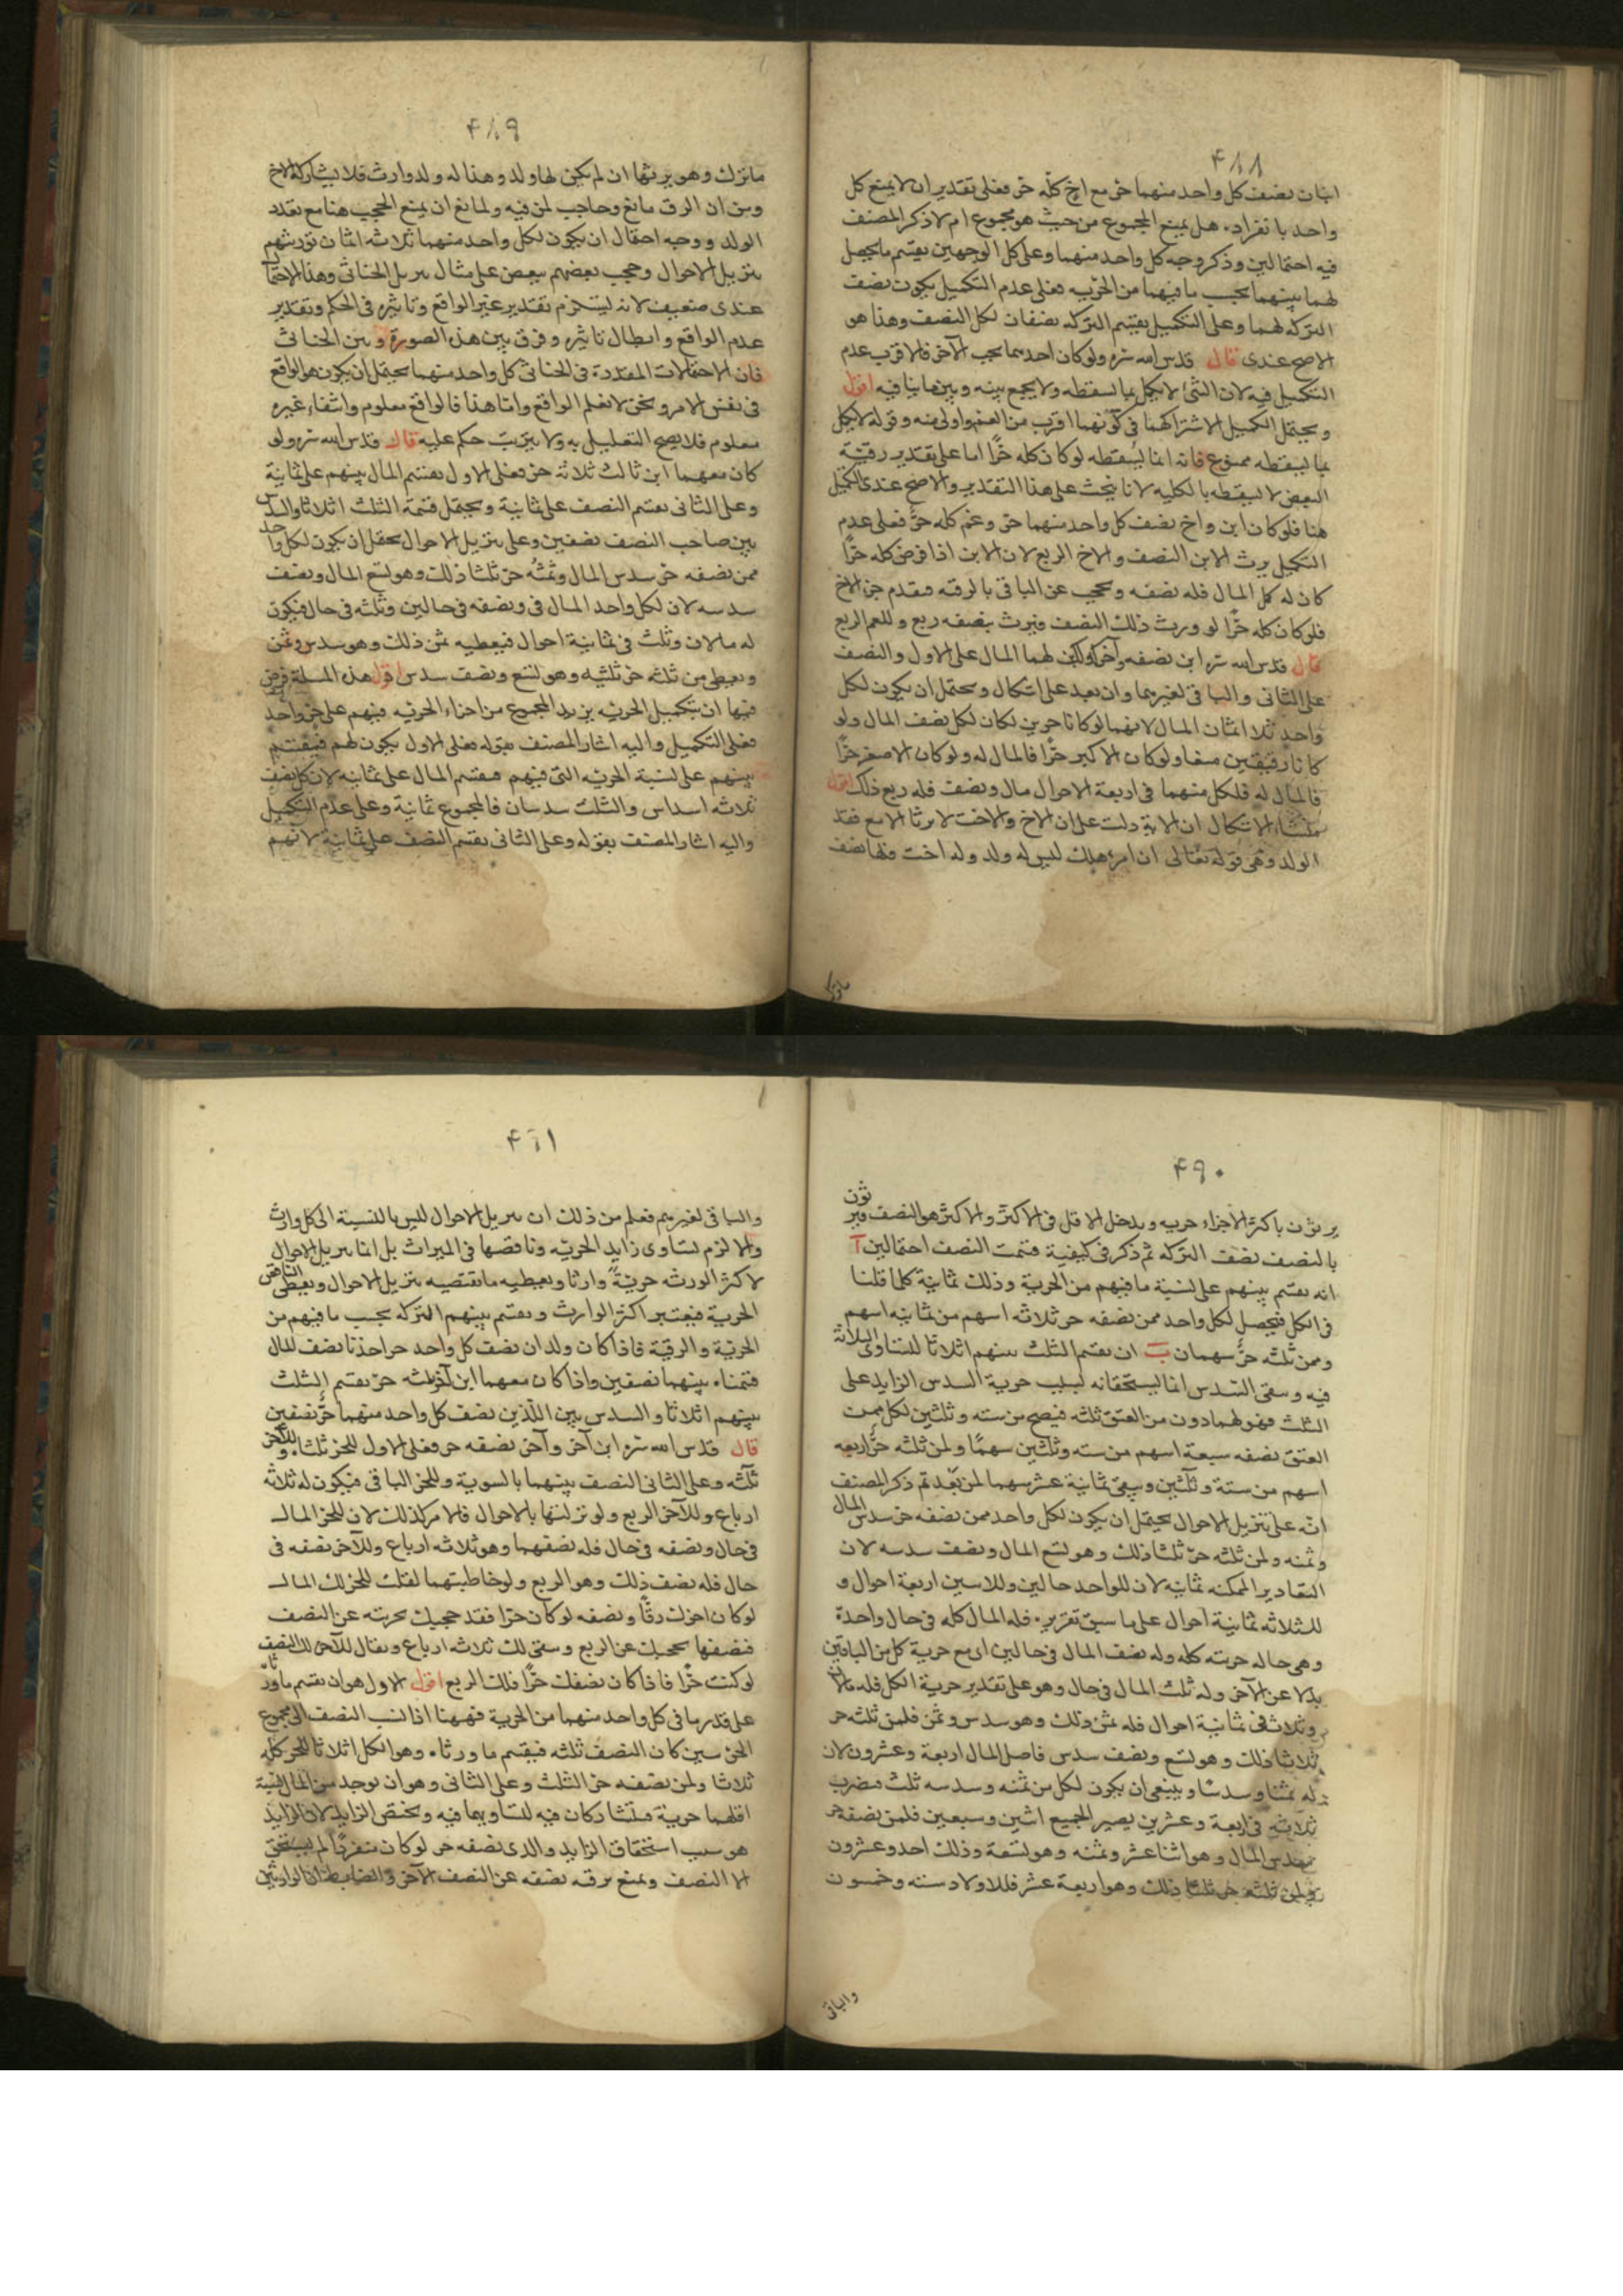 ۴۸۸
ابنان نصف كل واحد منهما حر مع اخ كله حر فعلى تقدير ان لا يمنع كل
واحد بانفراده هل يمنع المجموع من حيث هو مجموع ام لا ذكر المصنف
فيه احتمالين وذكر وجه كل واحد منهما وعلى كل الوجهين يقسم ما يحصل
لهما بينهما بحسب ما فيهما من الحرية فعلى عدم التكميل يكون نصف
التركه لهما وعلى التكميل يقسم التركه نصفان لكل النصف وهذا هو
الاصح عندى قال قدس الله سره ولو كان احدهما يحجب الآخر فالاقرب عدم
التكميل فيه لان الشئ لا يكمل بما يسقطه ولا يجمع بينه وبين ما ينافيه اقول
ويحتمل التكميل لاشتراكهما فى كونهما اقرب من العم واولى منه وقوله لا يكمل
بما يسقطه ممنوع فانه انما يسقطه لو كان كله حرًا اما على تقدير رقية
البعض لا يسقطه بالكليه لانا نبحث على هذا التقدير والاصح عندى التكميل
هنا فلو كان ابن واخ نصف كل واحد منهما حر وعم كله حرٌّ فعلى عدم
التكميل يرث الابن النصف والاخ الربع لان الابن اذا فرض كله حرًا
كان له كل المال فله نصفه ويحجب عن الباقى بالرقيه فيقدم حر الاخ
فلو كان كله حرًا لورث ذلك النصف فيرث بنصفه ربع وللعم الربع
قال قدس الله سره ابن نصفه وآخر كذلك لهما المال على الاول والنصف
على الثانى والباقى لغيرهما وان بعد على اشكال ويحتمل ان يكون لكل
واحد ثلاثة اثمان المال لانهما لو كانا حرين لكان لكل نصف المال ولو
كانا رقيقين منعا ولو كان الاكبر حرًا فالمال له ولو كان الاصغر حرًا
فالمال له فلكل منهما فى اربعة الاحوال مال ونصف فله ربع ذلك اقول
منشاء الاشكال ان الاية دلت على ان الاخ والاخت لا يرثا الا مع فقد
الولد وهى قوله تعالى ان امرء هلك ليس له ولد وله اخت فلها نصف
ما ترك
۴۸۹
ما ترك وهو يرثها ان لم يكن لها ولد وهذا له ولد وارث فلا يشاركه الاخ
ومن ان الرق مانع وحاجب لمن فيه ولمانع ان يمنع الحجب هنا مع تعدد
الولد ووجه احتمال ان يكون لكل واحد منهما ثلاثة اثمان توريثهم
بتنزيل الاحوال وحجب بعضهم ببعض على مثال تنزيل الخناثى وهذا الاحتمال
عندى ضعيف لانه يستلزم تقدير غير الواقع وتاثيره فى الحكم وتقدير
عدم الواقع وابطال تاثيره وفرق بين هذه الصورة وبين الخناثى
فان الاحتمالات المقدرة فى الخناثى كل واحد منهما يحتمل ان يكون هو الواقع
فى نفس الامر ونحن لا نعلم الواقع واما هذا فالواقع معلوم وانتفاء غيره
معلوم فلا يصح التعليل به ولا يترتب حكم عليه قال قدس الله سره ولو
كان معهما ابن ثالث ثلاثة حر فعلى الاول يقسم المال بينهم على ثمانية
وعلى الثانى يقسم النصف على ثمانية ويحتمل قسمة الثلث اثلاثا والسدس
بين صاحب النصف نصفين وعلى تنزيل الاحوال يحتمل ان يكون لكل واحد
ممن نصفه حر سدس المال وثمنه ولمن ثلثه حر ثلثا ذلك وهو تسع المال ونصف
سدسه لان لكل واحد المال فى ونصفه فى حالين وثلثه فى حال فيكون
له مالان وثلث فى ثمانية احوال فيعطيه ثمن ذلك وهو سدس وثمن
ويعطى من ثلثه حر ثلثيه وهو تسع ونصف سدس اقول هذه المسئلة فرض
فيها ان بتكميل الحريه يزيد المجموع من اجزاء الحريه فيهم على حر واحد
فعلى التكميل واليه اشار المصنف بقوله فعلى الاول يكون لهم فيقسم
بينهم على نسبة الحريه التى فيهم فيقسم المال على ثمانيه لان كل نصف
ثلاثه اسداس والثلث سدسان فالمجموع ثمانية وعلى عدم التكميل
واليه اشار المصنف بقوله وعلى الثانى يقسم النصف على ثمانية لانهم
۴۹۰
يرثون باكثر الاجزاء حريه ويدخل الاقل فى الاكثر والاكثر هو النصف فيرثون
بالنصف نصف التركه ثم ذكر فى كيفية قسمة النصف احتمالين آ
انه يقسم بينهم على نسبة ما فيهم من الحرية وذلك ثمانية كلما قلنا
فى الكل فيحصل لكل واحد ممن نصفه حر ثلاثه اسهم من ثمانيه اسهم
وممن ثلثه حرٌّ سهمان ب ان يقسم الثلث بينهم اثلاثا لتساوى الثلاثة
فيه ويبقى السدس انما يستحقانه بسبب حرية السدس الزايد على
الثلث فهو لهما دون من العتق ثلثه فيصح من سته وثلثين لكل ممن
العتق نصفه سبعة اسهم من سته وثلثين سهمًا ولمن ثلثه حرٌّ اربعه
اسهم من ستة وثلثين ويبقى ثمانية عشر سهما لمن بعدهم ذكر المصنف
انه على تنزيل الاحوال يحتمل ان يكون لكل واحد ممن نصفه حر سدس المال
وثمنه ولمن ثلثه حر ثلثا ذلك وهو تسع المال ونصف سدسه لان
التقادير الممكنه ثمانيه لان للواحد حالين وللاثنين اربعة احوال و
للثلاثه ثمانية احوال على ما سبق تقريره فله المال كله فى حال واحدة
وهى حاله حريته كله وله نصف المال فى حالين اى مع حرية كل من الباقين
بدلا عن الآخر وله ثلث المال فى حال وهو على تقدير حرية الكل فله مالان
وثلاث فى ثمانية احوال فله ثمن ذلك وهو سدس وثمن فلمن ثلثه حر
ثلاثا ذلك وهو تسع ونصف سدس فاصل المال اربعة وعشرون لان
له ثمنا وسدسا وينبغى ان يكون لكل من ثمنه وسدسه ثلث فيضرب
ثلاثه فى اربعة وعشرين يصير الجميع اثنين وسبعين فلمن نصفه حر
سدس المال وهو اثنا عشر وثمنه وهو تسعة وذلك احد وعشرون
ولمن ثلثه حر ثلثا ذلك وهو اربعة عشر فللاولاد سته وخمسون
والباقى
۴۹۱
والباقى لغيرهم فعلم من ذلك ان تنزيل الاحوال ليس بالنسبة الى كل وارث
والا لزم تساوى زايد الحريه وناقصها فى الميراث بل انما تنزيل الاحوال
لاكثر الورثه حريةً وارثا ويعطيه ما تقتضيه تنزيل الاحوال ويعطى الناقص
الحرية فيعتبر اكثر الوارث ويقسم بينهم التركه بحسب ما فيهم من
الحرية والرقية فاذا كان ولدان نصف كل واحد حر اخذنا نصف المال
قسمناه بينهما نصفين واذا كان معهما ابن آخر ثلثه حر يقسم الثلث
بينهم اثلاثا والسدس بين اللذين نصف كل واحد منهما حرٌّ نصفين
قال قدس الله سره ابن آخر وآخر نصفه حر فعلى الاول للحر ثلثاه وللآخر
ثلثه وعلى الثانى النصف بينهما بالسوية وللحر الباقى فيكون له ثلاثه
ارباع وللآخر الربع ولو نزلتها بالاحوال فالامر كذلك لان للحر المال
فى حال ونصفه فى حال فله نصفهما وهو ثلاثه ارباع وللآخر نصفه فى
حال فله نصف ذلك وهو الربع ولو خاطبتهما لقلت للحر لك المال
لو كان اخوك رقًا ونصفه لو كان حرًا فقد حجبك بحريته عن النصف
فنصفها يحجبك عن الربع ويبقى لك ثلاثه ارباع ويقال للآخر لك النصف
لو كنت حرًا فاذا كان نصفك حرًا فلك الربع اقول الاول هو ان يقسم ما ورثاه
على قدر ما فى كل واحد منهما من الحرية فههنا اذا نسب النصف الى مجموع
الحريتين كان النصف ثلثه فيقسم ما ورثاه وهو الكل اثلاثا للحر كله
ثلاثا ولمن نصفه حر الثلث وعلى الثانى وهو ان يوجد من المال نسبة
اقلهما حرية فيتشاركان فيه لتساويهما فيه ويختص الزايد لان الزايد
هو سبب استحقاق الزايد والذى نصفه حر لو كان منفردًا لم يستحق
الا النصف ويمنع برقيه نصفه عن النصف الآخر والضابط ان الوارثين